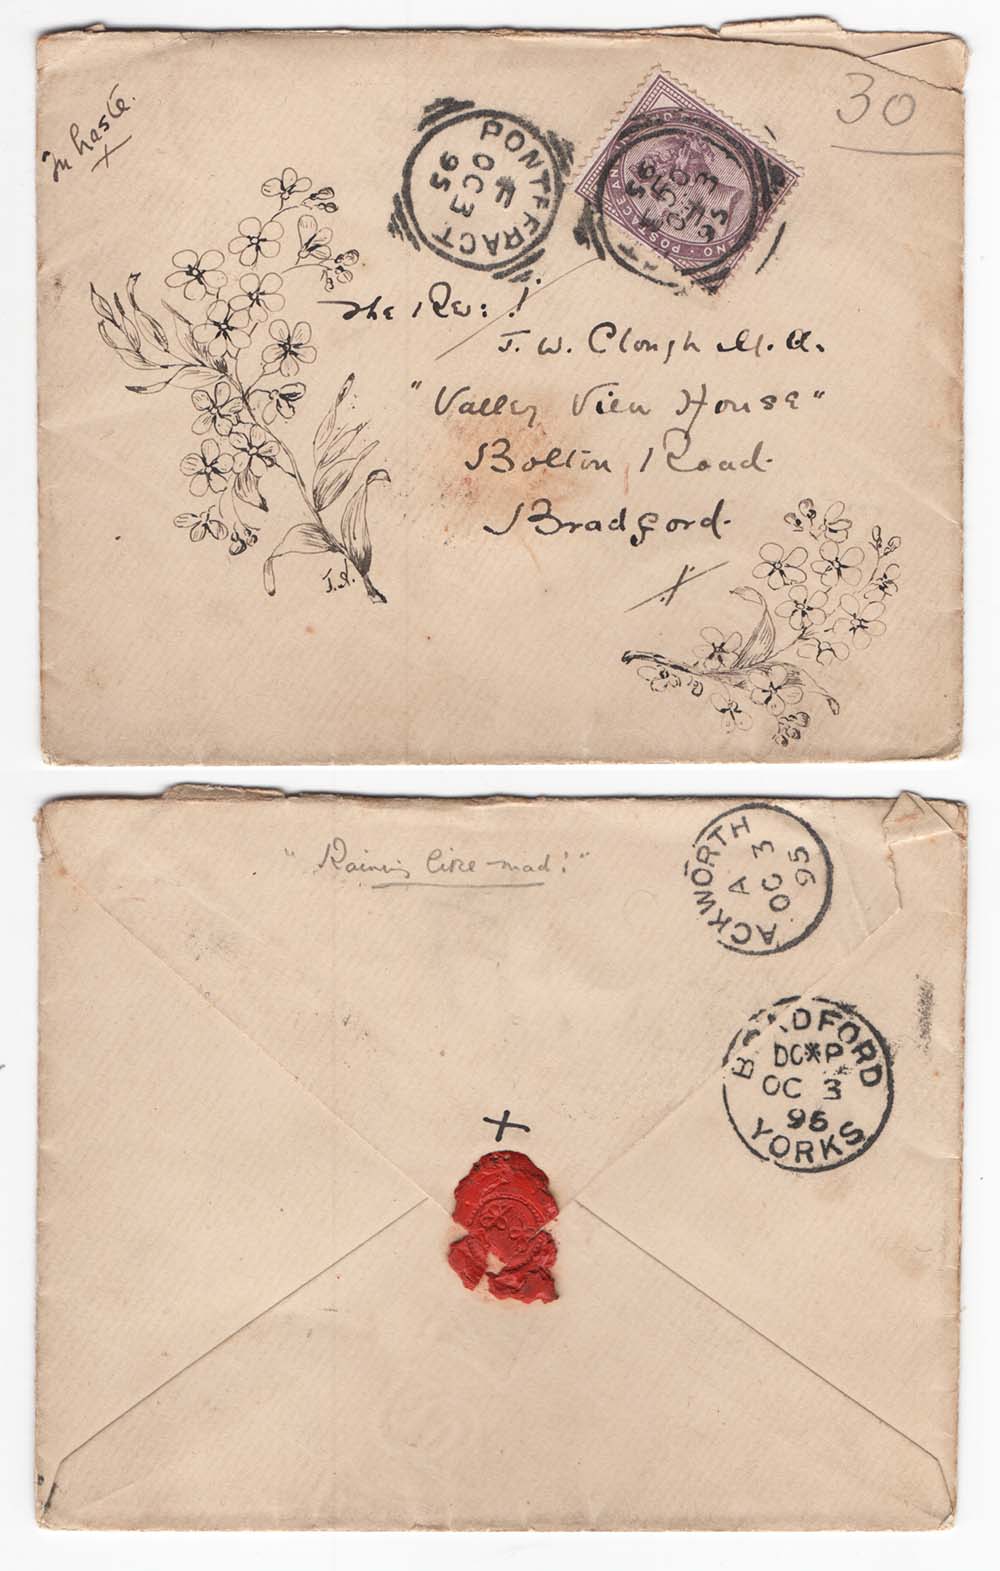 In haste.
30
PONTEFRACT
OC 3
95
POSTAGE AND
The Rev:
J. W. Clough M.A.
"Valley View House"
Bolton Road
Bradford.
"Raining like mad!"
ACKWORTH
A
OC 3
95
BRADFORD
OC 3
95
YORKS